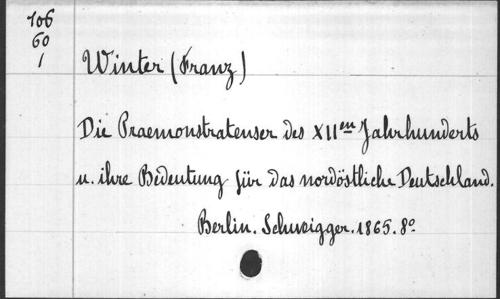 106
60
1
Winter (Franz)
Die Praemonstratenser des XII en Jahrhunderts
u. ihre Bedeutung für das nordöstliche Deutschland.
Berlin. Schweigger. 1865. 8º